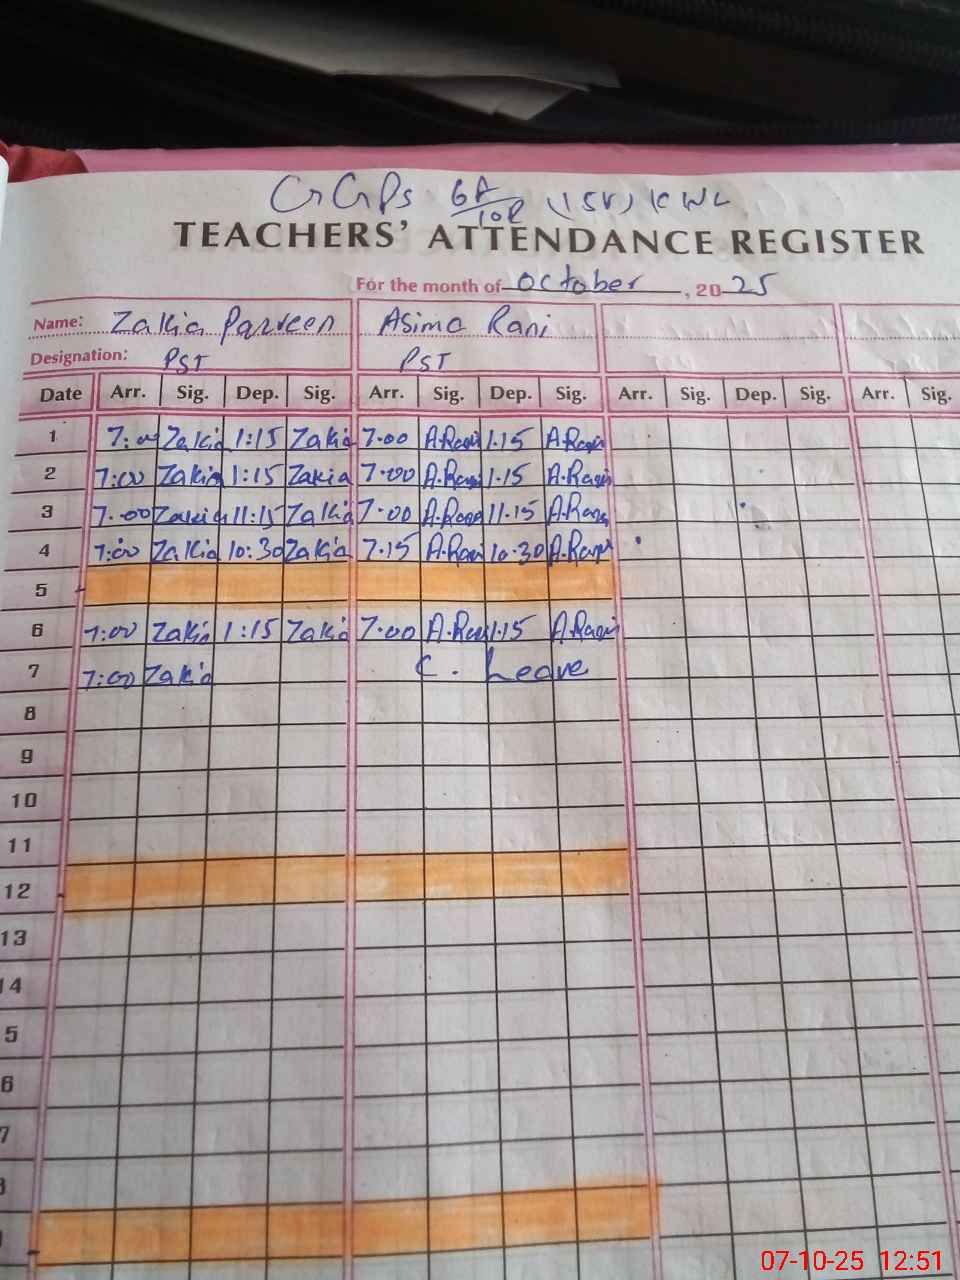 GGPS 6A/10R (15V) KWL
TEACHERS' ATTENDANCE REGISTER
For the month of October, 2025
Name: Zakia Parveen Asima Rani
Designation: PST PST
Date Arr. Sig. Dep. Sig. Arr. Sig. Dep. Sig. Arr. Sig. Dep. Sig. Arr. Sig.
1 7:00 Zakia 1:15 Zakia 7.00 A.Rani 1.15 A.Rani
2 7:00 Zakia 1:15 Zakia 7.00 A.Rani 1.15 A.Rani
3 7.00 Zakia 11:15 Zakia 7.00 A.Rani 11.15 A.Rani
4 7:00 Zakia 10:30 Zakia 7.15 A.Rani 10.30 A.Rani
5
6 7:00 Zakia 1:15 Zakia 7.00 A.Rani 1.15 A.Rani
7 7:00 Zakia C. Leave
8
9
10
11
12
13
14
5
6
7
07-10-25 12:51